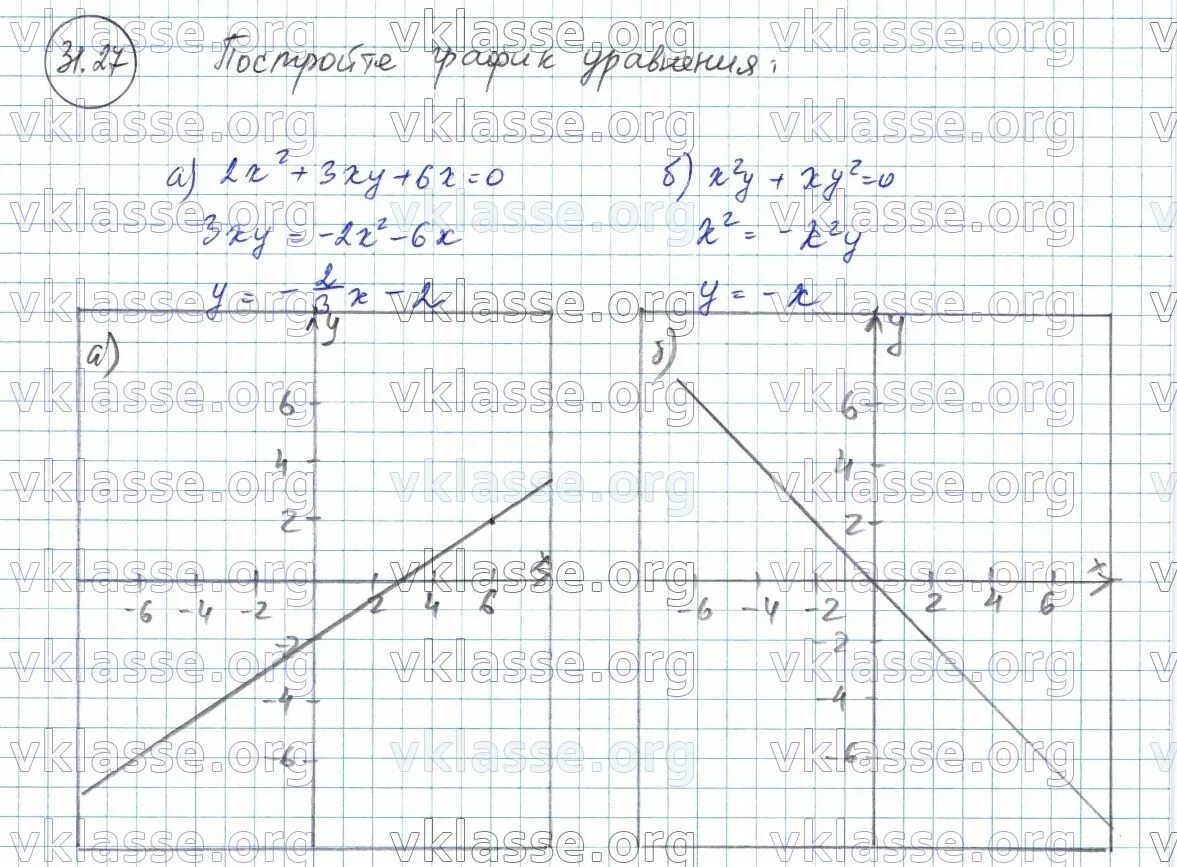 31.27 Постройте график уравнения:
а) 2x² + 3xy + 6x = 0
3xy = -2x² - 6x
y = - 2/3 x - 2
б) x²y + xy² = 0
x² = - x²y
y = - x
а)
y
6
4
2
x
-6 -4 -2 2 4 6
-2
-4
-6
б)
y
6
4
2
x
-6 -4 -2 2 4 6
-2
-4
-6
vklasse.org